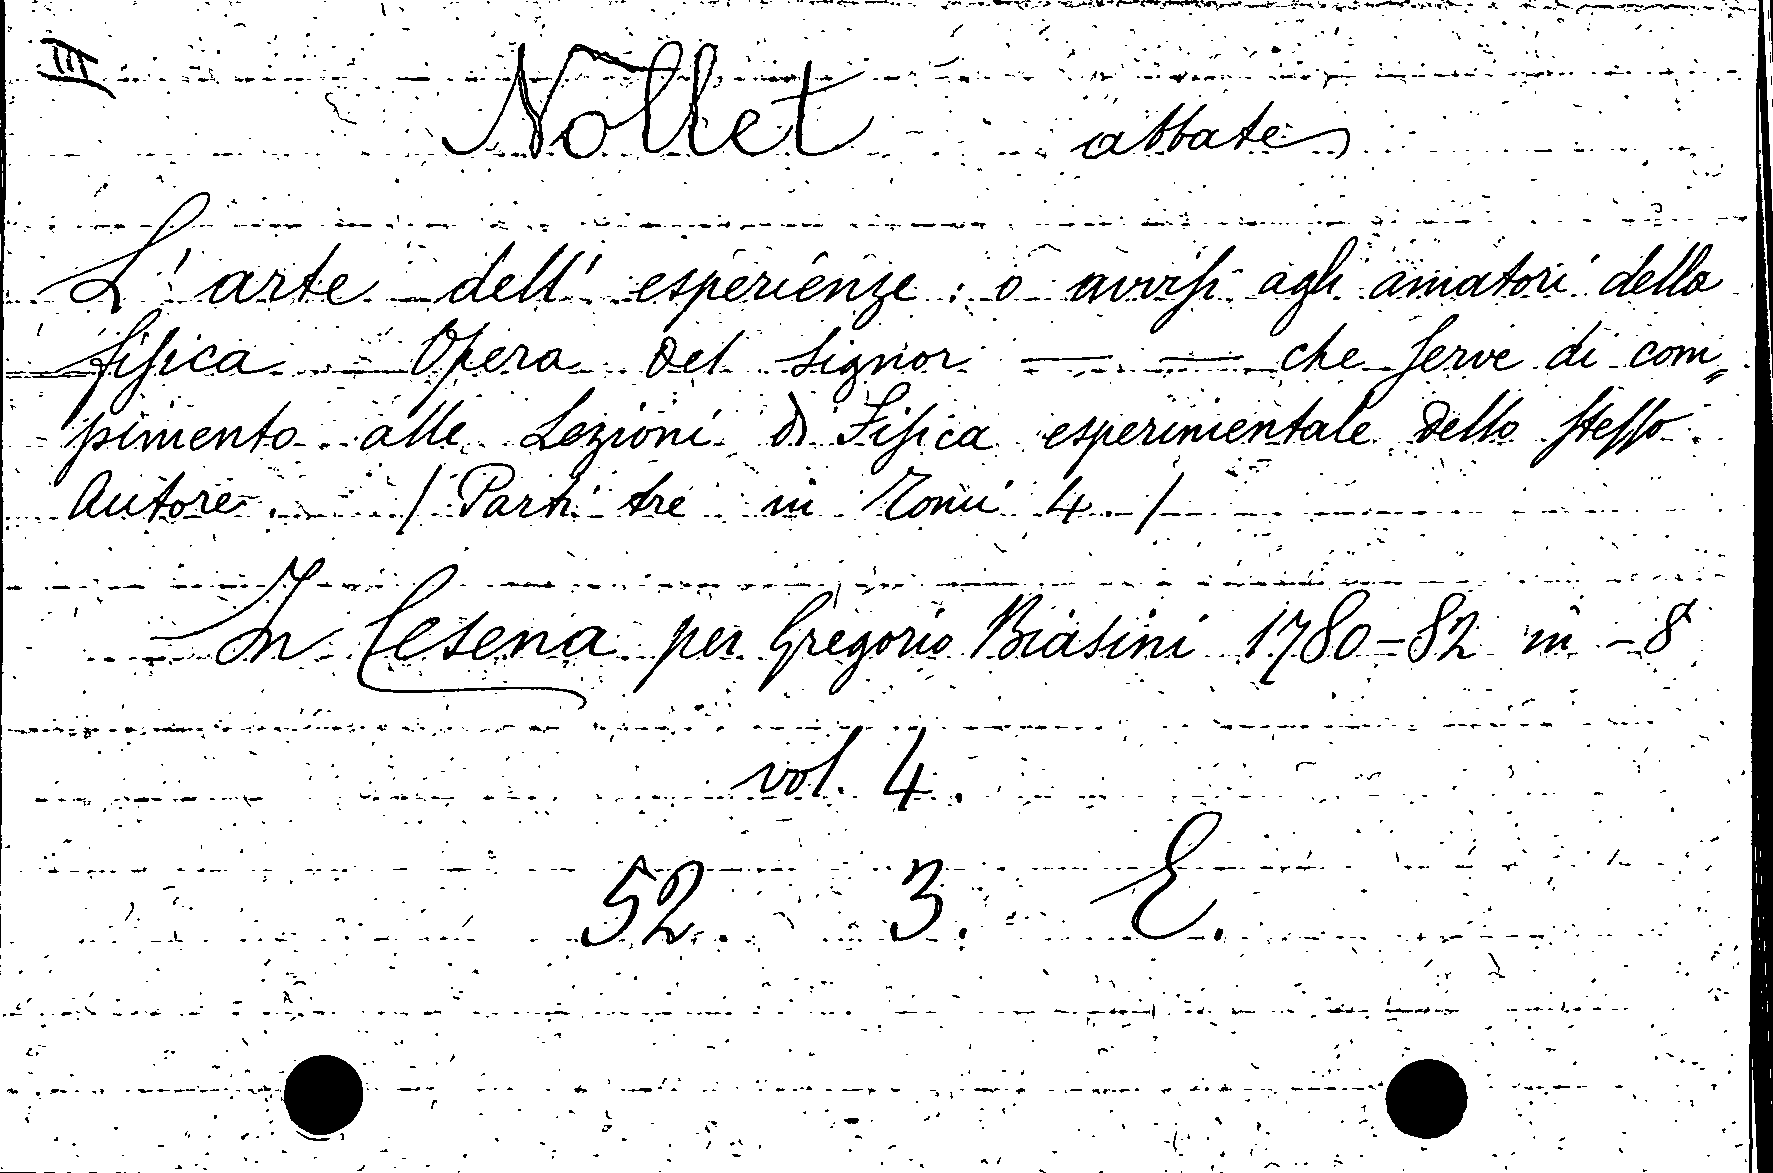 III
Nollet abbate
L'arte dell' esperienze: o avvisi agli amatori della
fisica – Opera del Signor — — che serve di com„
pimento alle Lezioni di Fisica esperimentale dello stesso
Autore. / Parti tre in Tomi 4. /
In Cesena per Gregorio Biasini 1780-82 in -8
vol. 4.
52. 3. E.